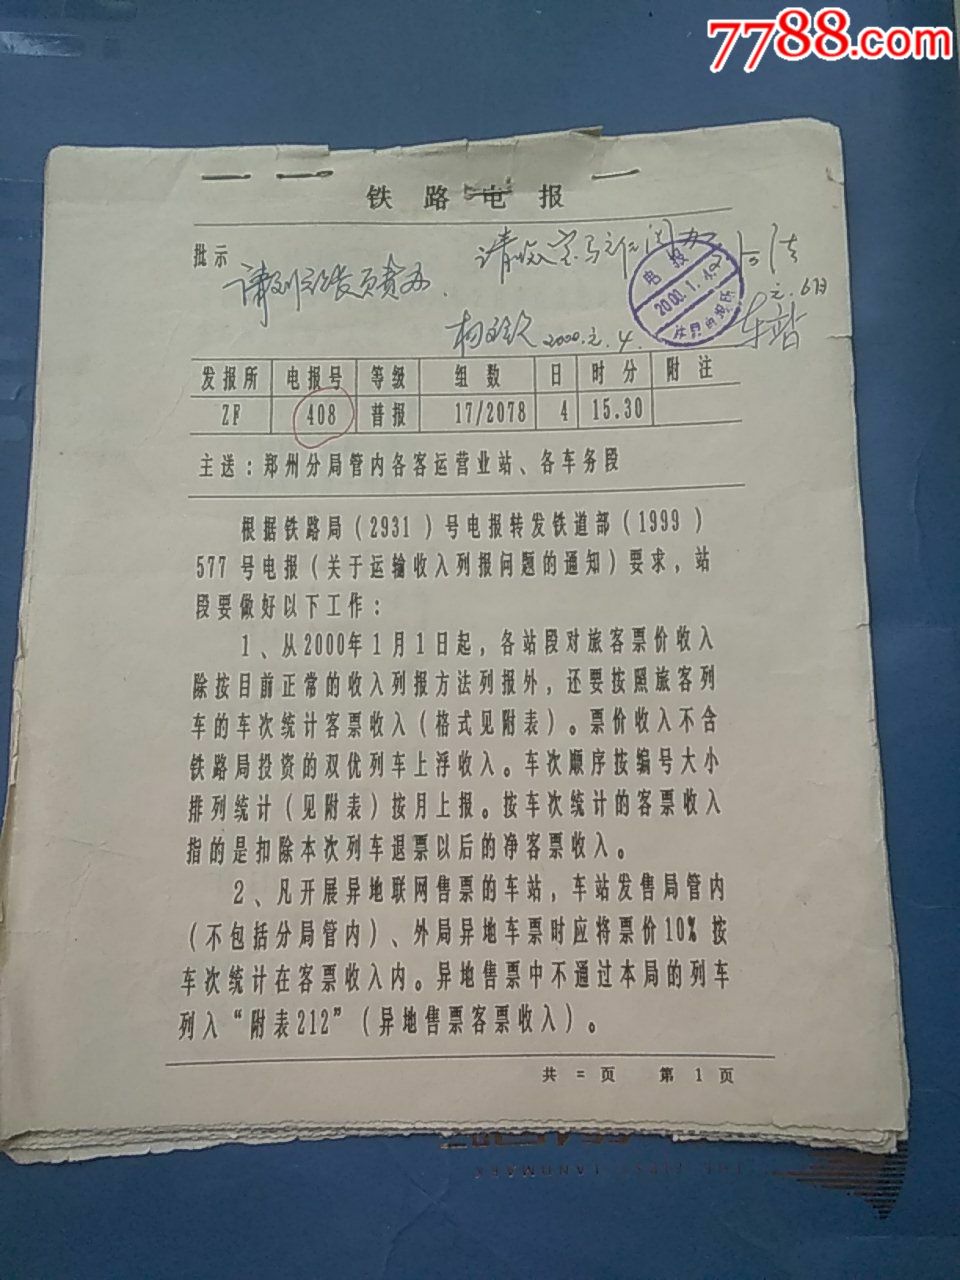 7788.com
铁路电报
批示
请刘站长负责办.
2000.元.4.
元.6日
车站
电报
2000.1.4
发报所 电报号 等级 组数 日 时分 附注
ZF 408 普报 17/2078 4 15.30
主送：郑州分局管内各客运营业站、各车务段
根据铁路局(2931)号电报转发铁道部(1999)
577号电报(关于运输收入列报问题的通知)要求，站
段要做好以下工作：
1、从2000年1月1日起，各站段对旅客票价收入
除按目前正常的收入列报方法列报外，还要按照旅客列
车的车次统计客票收入(格式见附表)。票价收入不含
铁路局投资的双优列车上浮收入。车次顺序按编号大小
排列统计(见附表)按月上报。按车次统计的客票收入
指的是扣除本次列车退票以后的净客票收入。
2、凡开展异地联网售票的车站，车站发售局管内
(不包括分局管内)、外局异地车票时应将票价10%按
车次统计在客票收入内。异地售票中不通过本局的列车
列入“附表212”(异地售票客票收入)。
共 = 页 第 1 页
THE FIRST LANDMARK